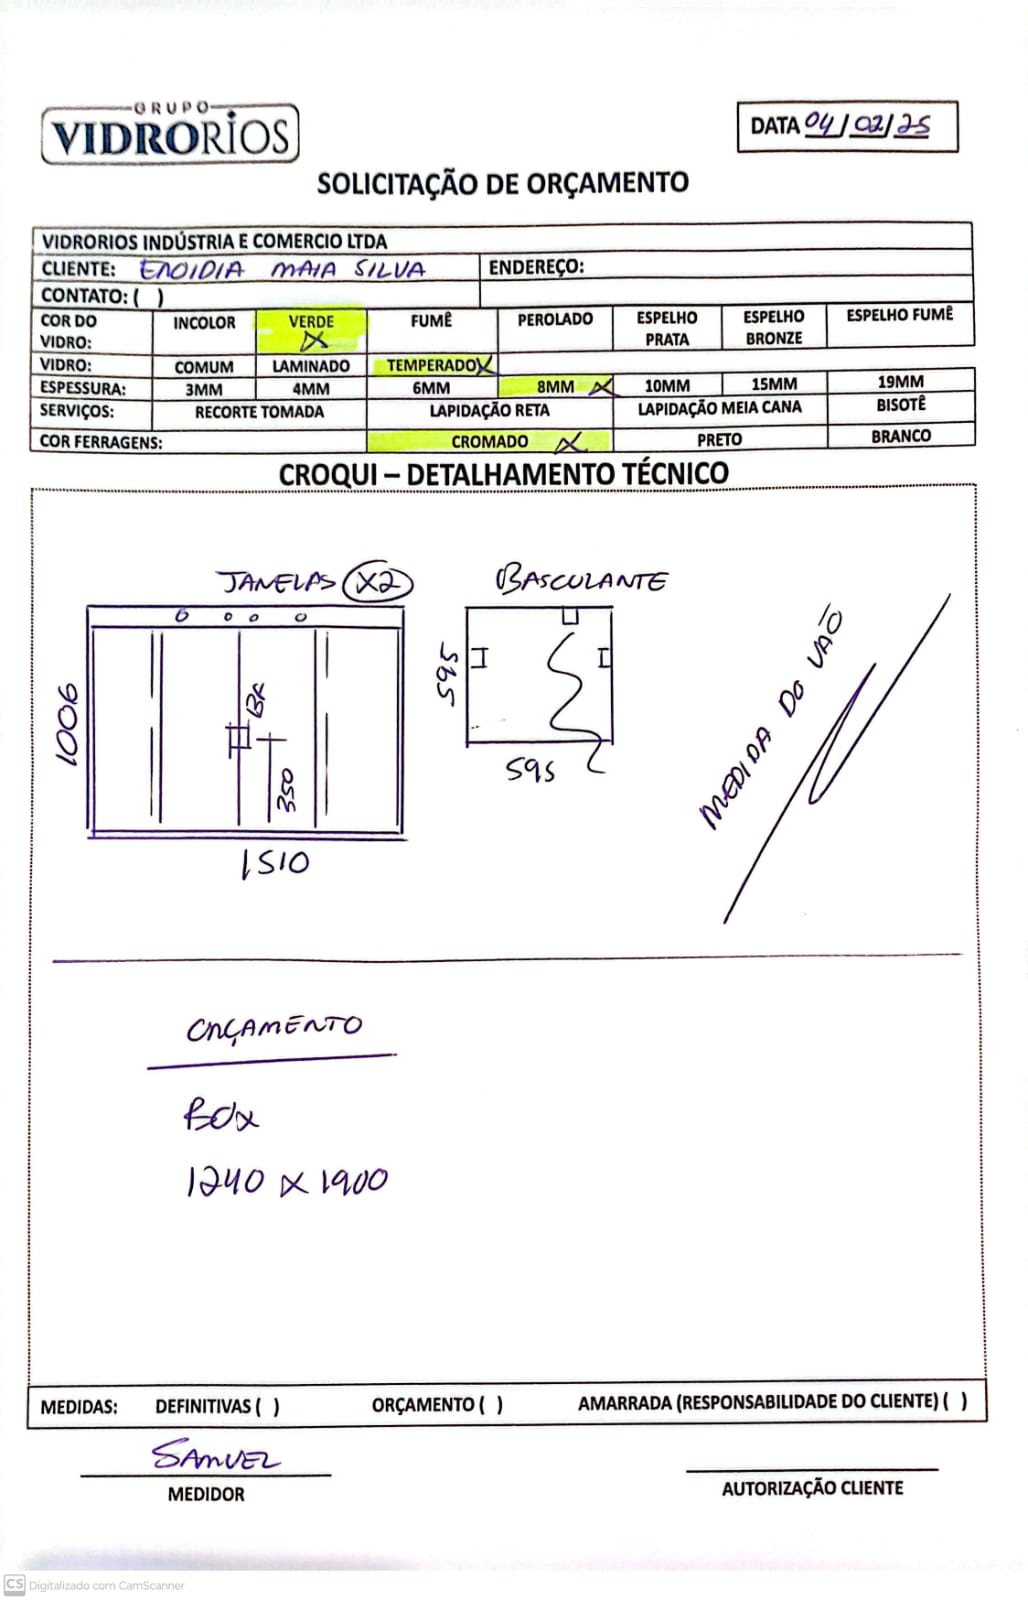 GRUPO
VIDRORIOS
DATA 04/02/25
SOLICITAÇÃO DE ORÇAMENTO
VIDRORIOS INDÚSTRIA E COMERCIO LTDA
CLIENTE: ENOIDIA MAIA SILVA ENDEREÇO:
CONTATO: ( )
COR DO VIDRO: INCOLOR VERDE X FUMÊ PEROLADO ESPELHO PRATA ESPELHO BRONZE ESPELHO FUMÊ
VIDRO: COMUM LAMINADO TEMPERADO X
ESPESSURA: 3MM 4MM 6MM 8MM X 10MM 15MM 19MM
SERVIÇOS: RECORTE TOMADA LAPIDAÇÃO RETA LAPIDAÇÃO MEIA CANA BISOTÊ
COR FERRAGENS: CROMADO X PRETO BRANCO
CROQUI – DETALHAMENTO TÉCNICO
JANELAS X2
BASCULANTE
1006
350
1510
595
595
MEDIDA DO VÃO
ORÇAMENTO
BOX
1240 X 1900
MEDIDAS: DEFINITIVAS ( ) ORÇAMENTO ( ) AMARRADA (RESPONSABILIDADE DO CLIENTE) ( )
SAMUEL
MEDIDOR
AUTORIZAÇÃO CLIENTE
CS Digitalizado com CamScanner